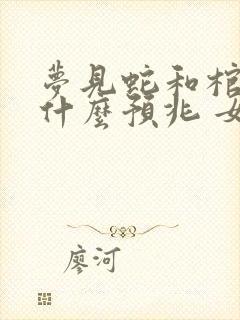 夢見蛇和棺
什麼預兆 女
廖河